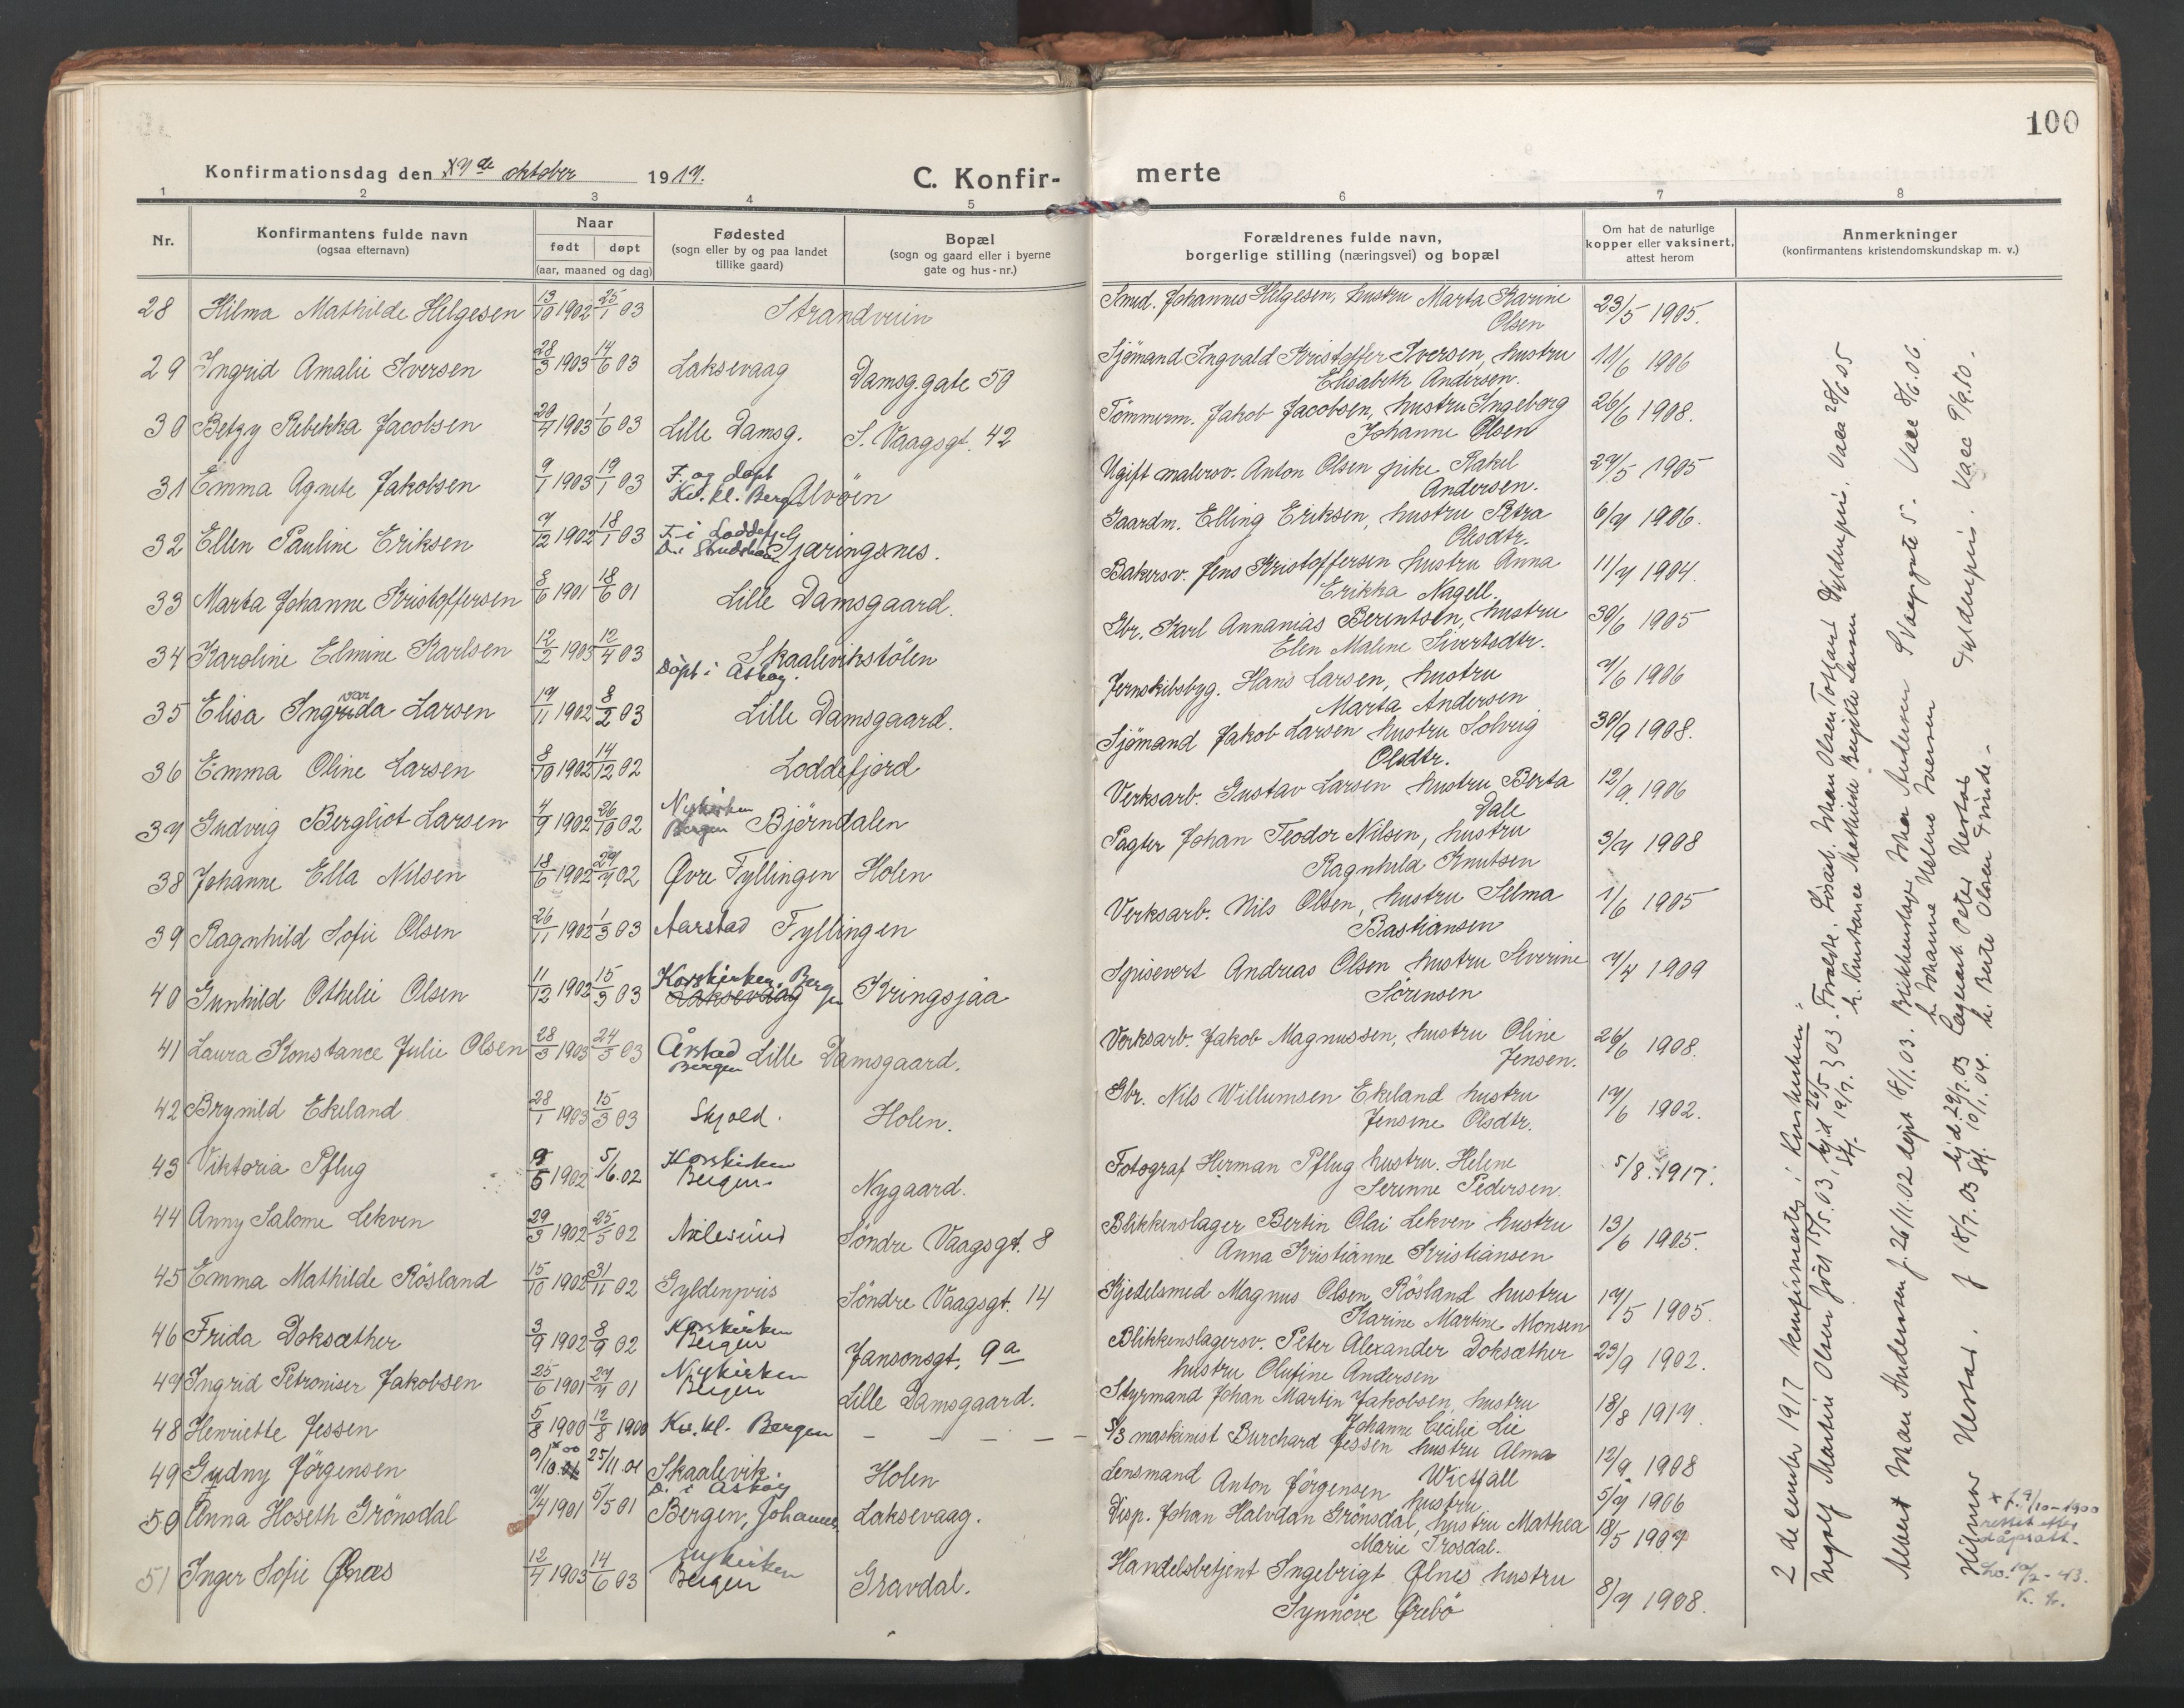 100
Konfirmationsdag den x7de oktober 1917.
C. Konfir-
merte
1 2 3 4 5 6 7 8
Nr.
Konfirmantens fulde navn
(ogsaa efternavn)
Naar
født døpt
(aar, maaned og dag)
Fødested
(sogn eller by og paa landet
tillike gaard)
Bopæl
(sogn og gaard eller i byerne
gate og hus-nr.)
Forældrenes fulde navn,
borgerlige stilling (næringsvei) og bopæl
Om hat de naturlige
kopper eller vaksinert,
attest herom
Anmerkninger
(konfirmantens kristendomskundskap m. v.)
28 Hilma Mathilde Helgesen 13/10 1902 25/1 03 Strandveien Smed. Johannes Helgesen, hustru Marta Karine 23/5 1905.
Olsen
29 Ingrid Amalie Iversen 28/3 1903 14/6 03 Laksevaag Damsg.gate 50 Sjömand Ingvald Kristoffer Iversen, hustru 11/6 1906
Elisabeth Andersen.
30 Betzy Rebekka Jacobsen 20/4 1903 1/6 03 Lille Damsg. S. Vaagsgt. 42 Tömmerm. Jakob Jacobsen, hustru Ingeborg 26/6 1908.
Johanne Olsen
31 Emma Agnete Jakobsen 9/1 1903 19/1 03 F. og døpt Kv. kl. Berg. Alvöen Ugift malersv. Anton Olsen pike Rakel 27/5 1905
Andersen.
32 Ellen Pauline Eriksen 7/12 1902 18/1 03 F. i Loddefj. Gjæringsnes. Gaardm. Elling Eriksen, hustru Petra 6/7 1906.
Olsdtr.
33 Marta Johanne Kristoffersen 8/6 1901 18/6 01 Lille Damsgaard. Bakersv. Jens Kristoffersen hustru Anna 11/7 1904.
Erikka Nagell.
34 Karoline Elmine Karlsen 12/2 1903 12/4 03 Skaalevikstölen Gbr. Karl Annanias Berintsen, hustru 30/6 1905
Döpt i Askøy. Elen Malene Sivertsdtr.
35 Elisa Ingvarda Larsen 17/11 1902 8/2 03 Lille Damsgaard. Jernskibsbyg. Hans Larsen, hustru 7/6 1906
Marta Andersen
36 Emma Oline Larsen 8/10 1902 14/12 02 Loddefjord Sjömand Jakob Larsen hustru Solveig 30/9 1908.
Olsdtr.
37 Gudvig Bergliot Larsen 4/9 1902 26/10 02 Nykirken Bergen Björndalen Verksarb. Gustav Larsen hustru Berta 12/9 1906
Dale
38 Johanne Ella Nilsen 18/6 1902 27/7 02 Øvre Fyllingen Holen Pagter Johan Teodor Nilsen, hustru 3/7 1908
Ragnhild Knutsen
39 Ragnhild Sofie Olsen 26/11 1902 1/3 03 Aarstad Fyllingen Verksarb. Nils Olsen, hustru Selma 1/6 1905
Bastiansen
40 Gunhild Othelie Olsen 11/12 1902 15/3 03 Korskirken, Bergen Laksevaag Kringsjaa Spisevert Andreas Olsen hustru Severine 7/4 1909
Sörensen
41 Laura Konstance Julie Olsen 28/3 1903 24/5 03 Årstad Bergen Lille Damsgaard. Verksarb. Jakob Magnussen, hustru Oline 26/6 1908.
Jensen.
42 Brynild Ekeland 28/1 1903 15/3 03 Skjold. Holen. Gbr. Nils Willumsen Ekeland hustru 17/6 1902.
Jensine Olsdtr.
43 Viktoria Pflug 9/5 1902 5/6.02 Korskirken Bergen. Nygaard. Fotograf Herman Pflug hustru. Helene 5/8.1917.
Serenne Pedersen.
44 Anny Salome Lekven 29/3 1902 25/5 02 Söndre Vaagsgt. 8 Blikkenslager Bertin Olai Lekven hustru 13/6 1905.
Anna Kristianne Kristiansen
45 Emma Mathilde Rösland 15/10 1902 31/11 02 Gyldenpris Söndre Vaagsgt. 14 Kjedelsmed Magnus Olsen Rösland hustru 17/5 1905.
Karine Martine Monsen
46 Frida Doksæther 3/9 1902 8/9 02 Korskirken Bergen Jansonsgt. 9a Blikkenslagersv. Peter Alexander Doksæther 23/9 1902.
hustru Olufine Andersen
47 Ingrid Petroniser Jakobsen 25/6 1901 27/7 01 Nykirken Bergen Lille Damsgaard. Styrmand Johan Martin Jakobsen, hustru 18/8 1917.
Johanne Cecilie Lie
48 Henriette Jessen 5/8 1900 12/8 1900 Kv. kl. Bergen - - - - S/S maskinist Burchard Jessen hustru Alma 12/9 1908
Wietfall
49 Gudny Jörgensen 9/10.00 25/11.01 Skaalevik. D. i Askøy Holen Lensmand Anton Jörgensen hustru 5/7 1906
50 Anna Hoseth Grönsdal 7/4 1901 5/5 01 Bergen, Johannesk. Laksevaag. Disp. Johan Halvdan Grönsdal, hustru Mathea 18/5 1907
Marie Trosdal.
51 Inger Sofie Ølnæs 12/4 1903 14/6 03 Nykirken Bergen Gravdal. Handelsbetjent Ingebrigt Ølnes hustru 8/7 1908.
Synnöve Ørebö
2 december 1917 konfirmertes i Kirken:
Ingolf Martin Olsen født 15/5.03, hjd 26/5 Stf. 19/7.03. Forældre: Lösarb. Johan Olsen Gyldenpris. Vacc 28/6 05
h. Konstance Mathilde Larsen
Johan Andersen f. 26/11.02 døpt 18/1.03. Blikkenslager Johan Andersen S Vaagsgate 5. Vacc 8/6.06.
h. Johanne Helene Iversen
Hilmar Herstad. f 18/7.03 hjd 29/7.03 Stf. 10/1.04. Lagerarb. Peter Herstad Gyldenpris. Vacc 9/9.10.
h. Berte Olsen Trinde.
x f. 9/10-1900
rettet efter
dåpsatt.